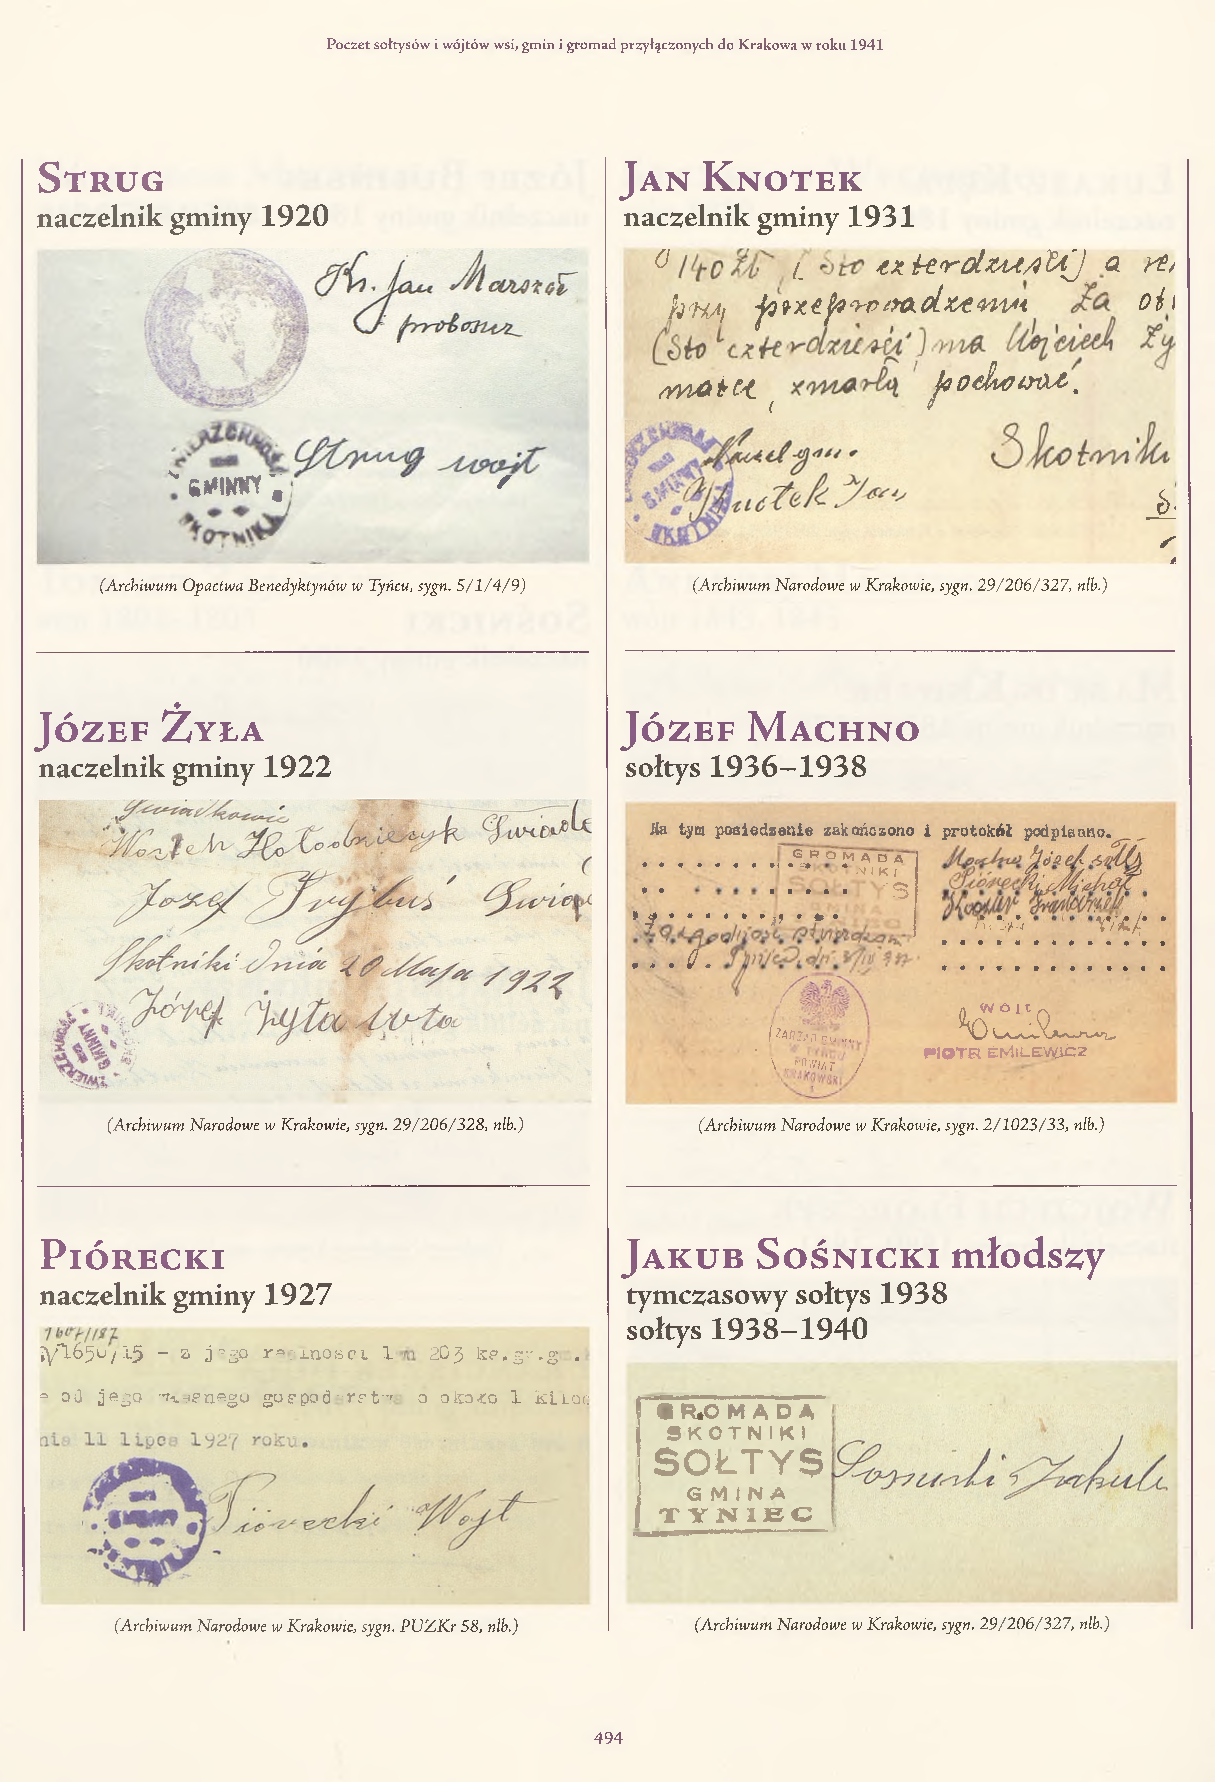 Poczet sołtysów i wójtów wsi, gmin i gromad przyłączonych do Krakowa w roku 1941
Strug
naczelnik gminy 1920
Ks. Jan Marszał
proboszcz
Strug wójt
ZWIERZCHNOŚĆ
GMINNY
SKOTNIKA
(Archiwum Opactwa Benedyktynów w Tyńcu, sygn. 5/1/4/9)
Józef Żyła
naczelnik gminy 1922
Świadkowie
Józef Trybuś
Skotniki dnia 20 Maja 1922
Józef Żyła
ZWIERZCHNOŚĆ
GMINNY
(Archiwum Narodowe w Krakowie, sygn. 29/206/328, nlb.)
Piórecki
naczelnik gminy 1927
1650/15 – z jego realności 203 kg.
od jego własnego gospodarstwa o około 1 kilo
nia 11 lipca 1927 roku.
Piórecki Wójt
(Archiwum Narodowe w Krakowie, sygn. PUZKr 58, nlb.)
Jan Knotek
naczelnik gminy 1931
140 Zł (Sto czterdzieści) a
przy przeprowadzeniu Za
(Sto czterdzieści) ma Wojciech Ży
matce zmarłą pochować.
Skotniki
Naczel gm.
Knotek Jan
GMINNY
(Archiwum Narodowe w Krakowie, sygn. 29/206/327, nlb.)
Józef Machno
sołtys 1936–1938
Na tym posiedzenie zakończono i protokół podpisano.
GROMADA
SKOTNIKI
SOŁTYS
GMINA
Machno Józef
Piórecki Michał
Za zgodność stwierdzam
ZARZĄD GMINNY
W TYŃCU
POWIAT
KRAKOWSKI
WÓJT
Emilewicz
PIOTR EMILEWICZ
(Archiwum Narodowe w Krakowie, sygn. 2/1023/33, nlb.)
Jakub Sośnicki młodszy
tymczasowy sołtys 1938
sołtys 1938–1940
GROMADA
SKOTNIKI
SOŁTYS
GMINA
TYNIEC
Sosnicki Jakub
(Archiwum Narodowe w Krakowie, sygn. 29/206/327, nlb.)
494